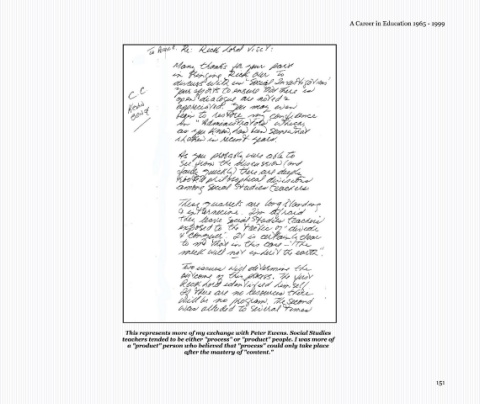 A Career in Education 1965 - 1999
Re: Rick Lord Visit:
Many thanks for your part
in bringing Rick over to
discuss with us Social Investigations
your efforts to ensure that there is
open dialogue are noted &
appreciated. You may even
begin to restore my confidence
in "Administrators" which,
as you know, has been somewhat
shaken in recent years.
CC
As you probably were able to
see from the discussion (and
quickly) there are deeply
rooted philosophical divisions
among Social Studies teachers
These quarrels are long standing
& I'm afraid
they leave Social Studies teachers
exposed to the tactics of "divide
& conquer". It is certainly clear
to me that in this case - "The
meek will not inherit the earth".
Two issues will determine the
outcome of this process. The first
Rick Lord identified himself.
If there are no resources there
will be no program. The second
was alluded to several times
This represents more of my exchange with Peter Ewens. Social Studies
teachers tended to be either "process" or "product" people. I was more of
a "product" person who believed that "process" could only take place
after the mastery of "content."
151